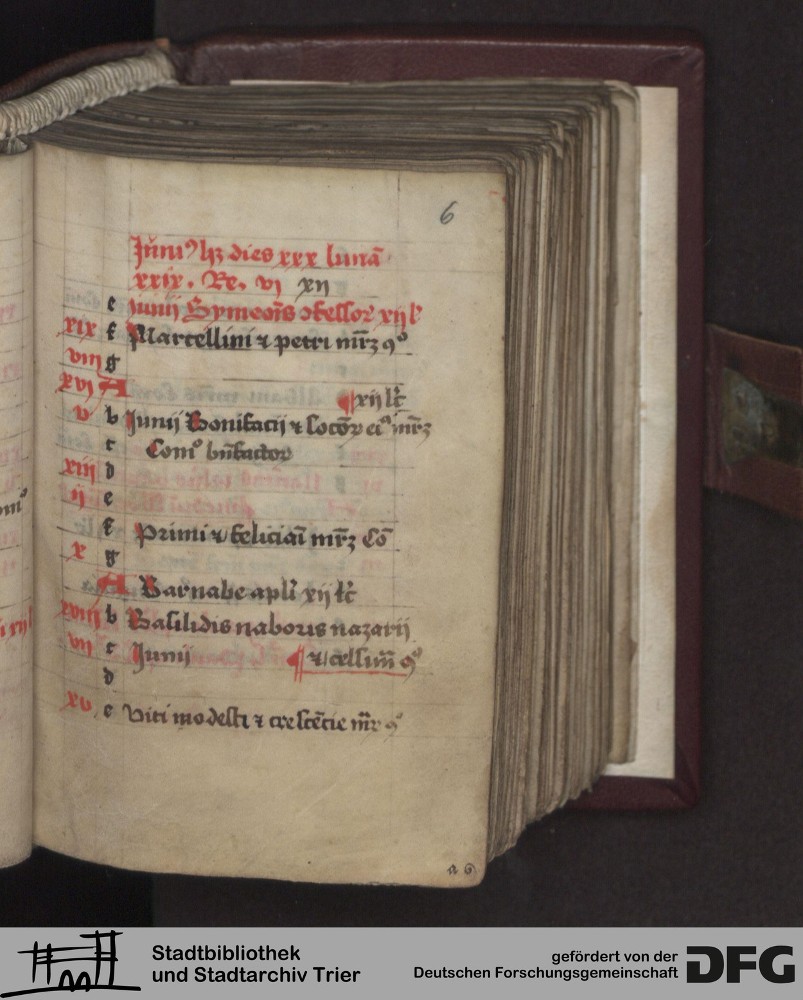 6
Juni⁹ hꝫ dies xxx lunā
xxix. Re. vj xij
e Junij Symeoīs ꝯfessor xij l'
xix f Marcellini ⁊ petri mr̄ꝫ 9º
viij g
xvj A ¶ xij lc̄
v b Junij Bonifacij ⁊ socoꝝ ei⁹ mr̄ꝫ
c Comº bn̄factoꝝ
xiij d
ij e
f Primi ⁊ feliciāi mr̄ꝫ Cō
x g
A Barnabe apl'i xij lc̄
xviij b Basilidis naboris nazarij
vij c Junij ¶ ⁊ cellini 9º
d
xv e Viti modesti ⁊ crescēcie mr̄ 9º
a 6
Stadtbibliothek
und Stadtarchiv Trier
gefördert von der
Deutschen Forschungsgemeinschaft
DFG